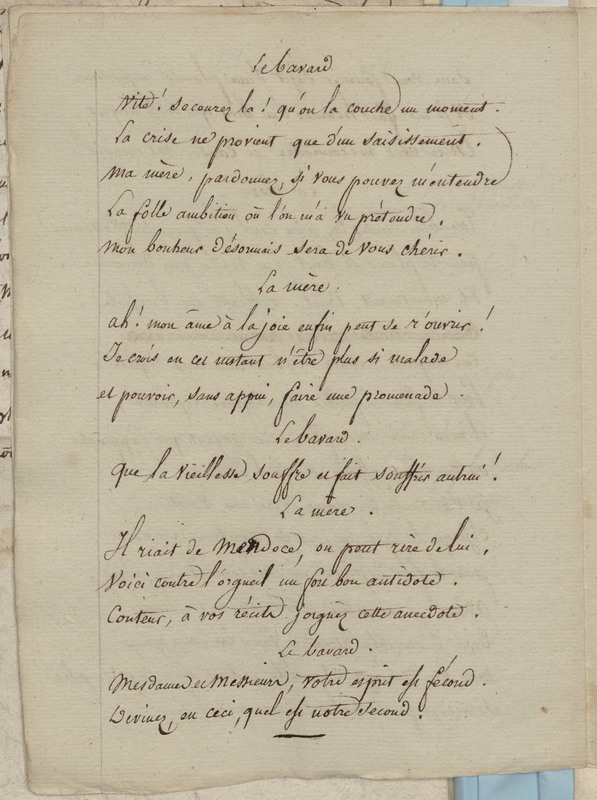 Le bavard
Vite! secourez la! qu'on la couche un moment.
La crise ne provient que d'un saisissement.
Ma mère, pardonnez, si vous pouvez m'entendre
La folle ambition où l'on m'a vu prétendre.
Mon bonheur désormais sera de vous chérir.
La mère.
ah! mon âme à la joie enfin peut se r'ouvrir!
Je crois en cet instant n'être plus si malade
et pouvoir, sans appui, faire une promenade.
Le bavard.
que la vieillesse souffre et fait souffrir autrui!
La mère.
Il riait de Mendoce, on peut rire de lui.
Voici contre l'orgueil un fort bon antidote.
Conteur, à vos récits joignez cette anecdote.
Le bavard.
Mesdames et Messieurs, votre esprit est fécond.
Devinez, en ceci, quel est notre second.